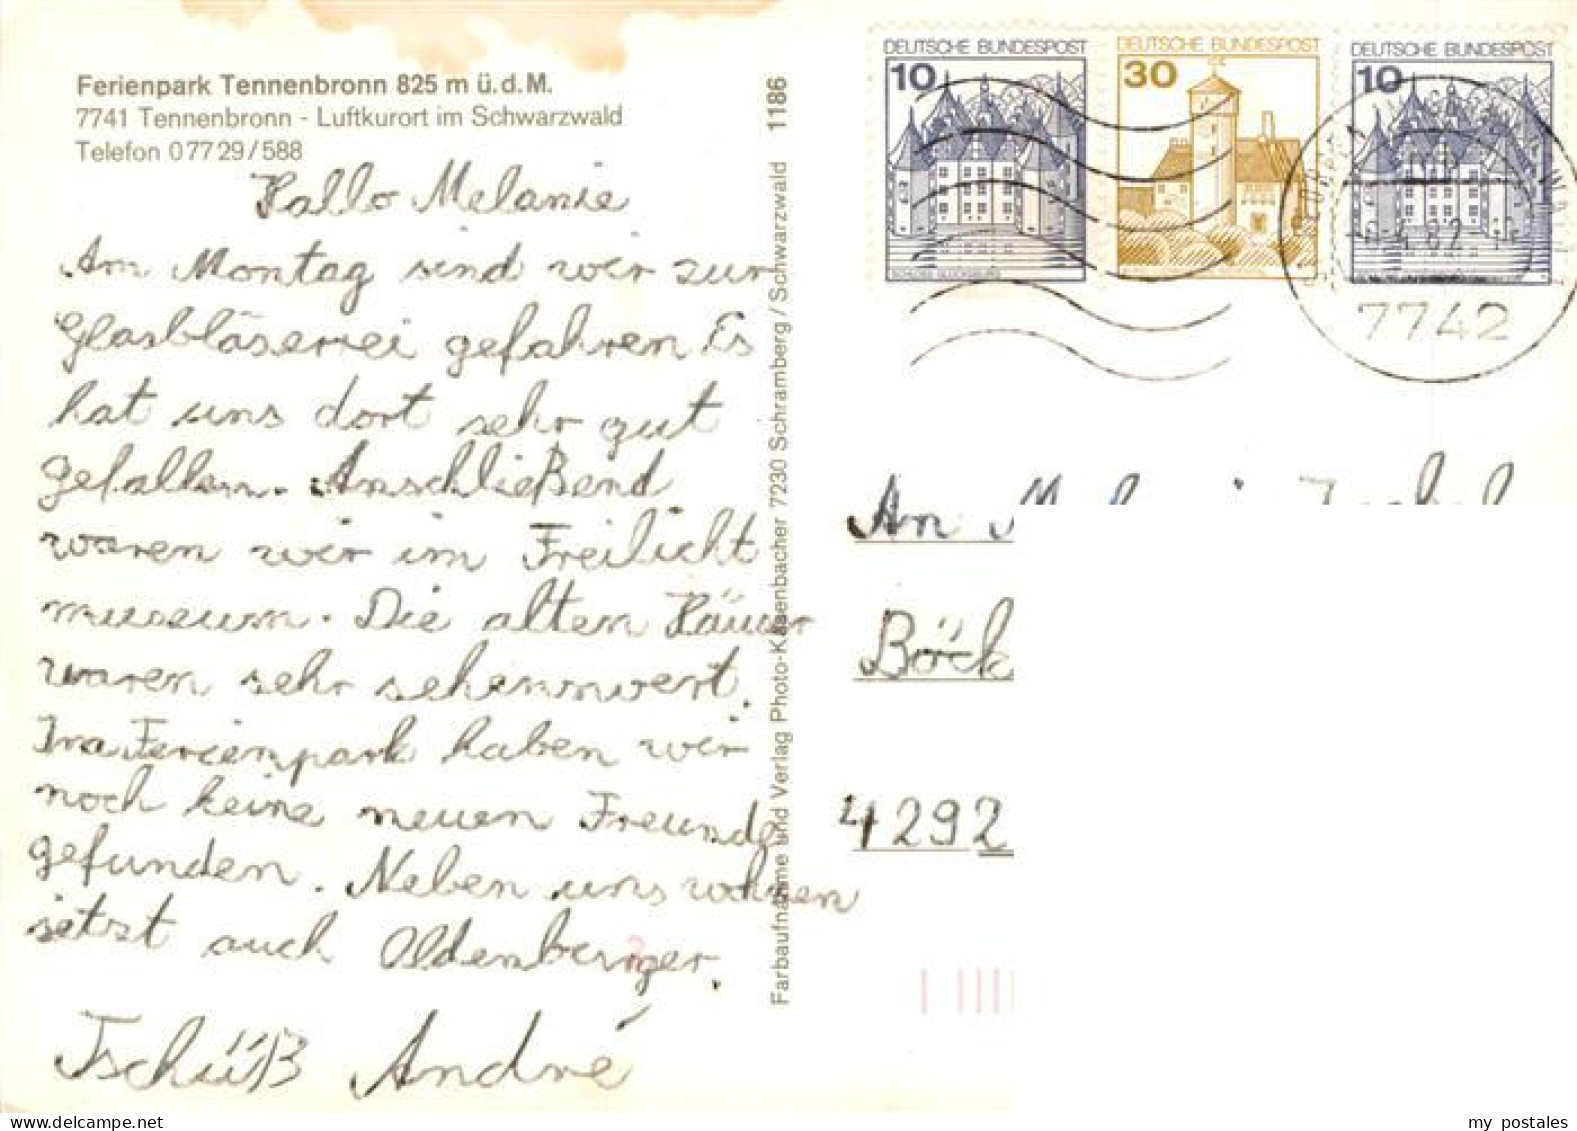 Ferienpark Tennenbronn 825 m ü.d.M.
7741 Tennenbronn - Luftkurort im Schwarzwald
Telefon 07729/588
Hallo Melanie
Am Montag sind wir zur
Glasbläserei gefahren Es
hat uns dort sehr gut
gefallen. Anschließend
waren wir im Freilicht
museum. Die alten Häuser
waren sehr sehennwert.
Im Ferienpark haben wir
noch keine neuen Freunde
gefunden. Neben uns wohnen
jetzt auch Oldenburger.
Tschüß André
Farbaufnahme und Verlag Photo-Käsenbacher 7230 Schramberg / Schwarzwald 1186
DEUTSCHE BUNDESPOST
10
SCHLOSS GLÜCKSBURG
DEUTSCHE BUNDESPOST
30
DEUTSCHE BUNDESPOST
10
7742
An
Böck
4292
my postales